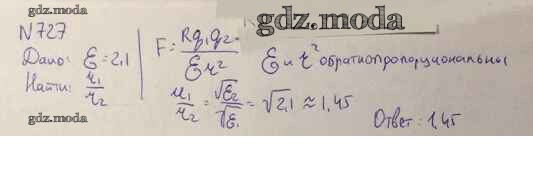 gdz.moda
N727
Дано: ε = 2,1
Найти: r₁/r₂
gdz.moda
F = kq₁q₂/εr²
ε и r² обратнопропорциональны
r₁/r₂ = √ε₂/√ε₁ = √2,1 ≈ 1,45
Ответ: 1,45
gdz.moda